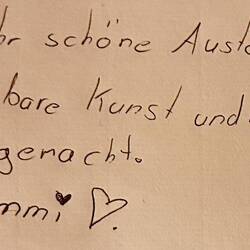 hr schöne Auste
bare Kunst und
genacht.
mmi